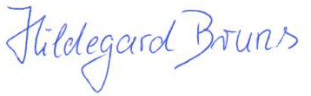 Hildegard Bruns